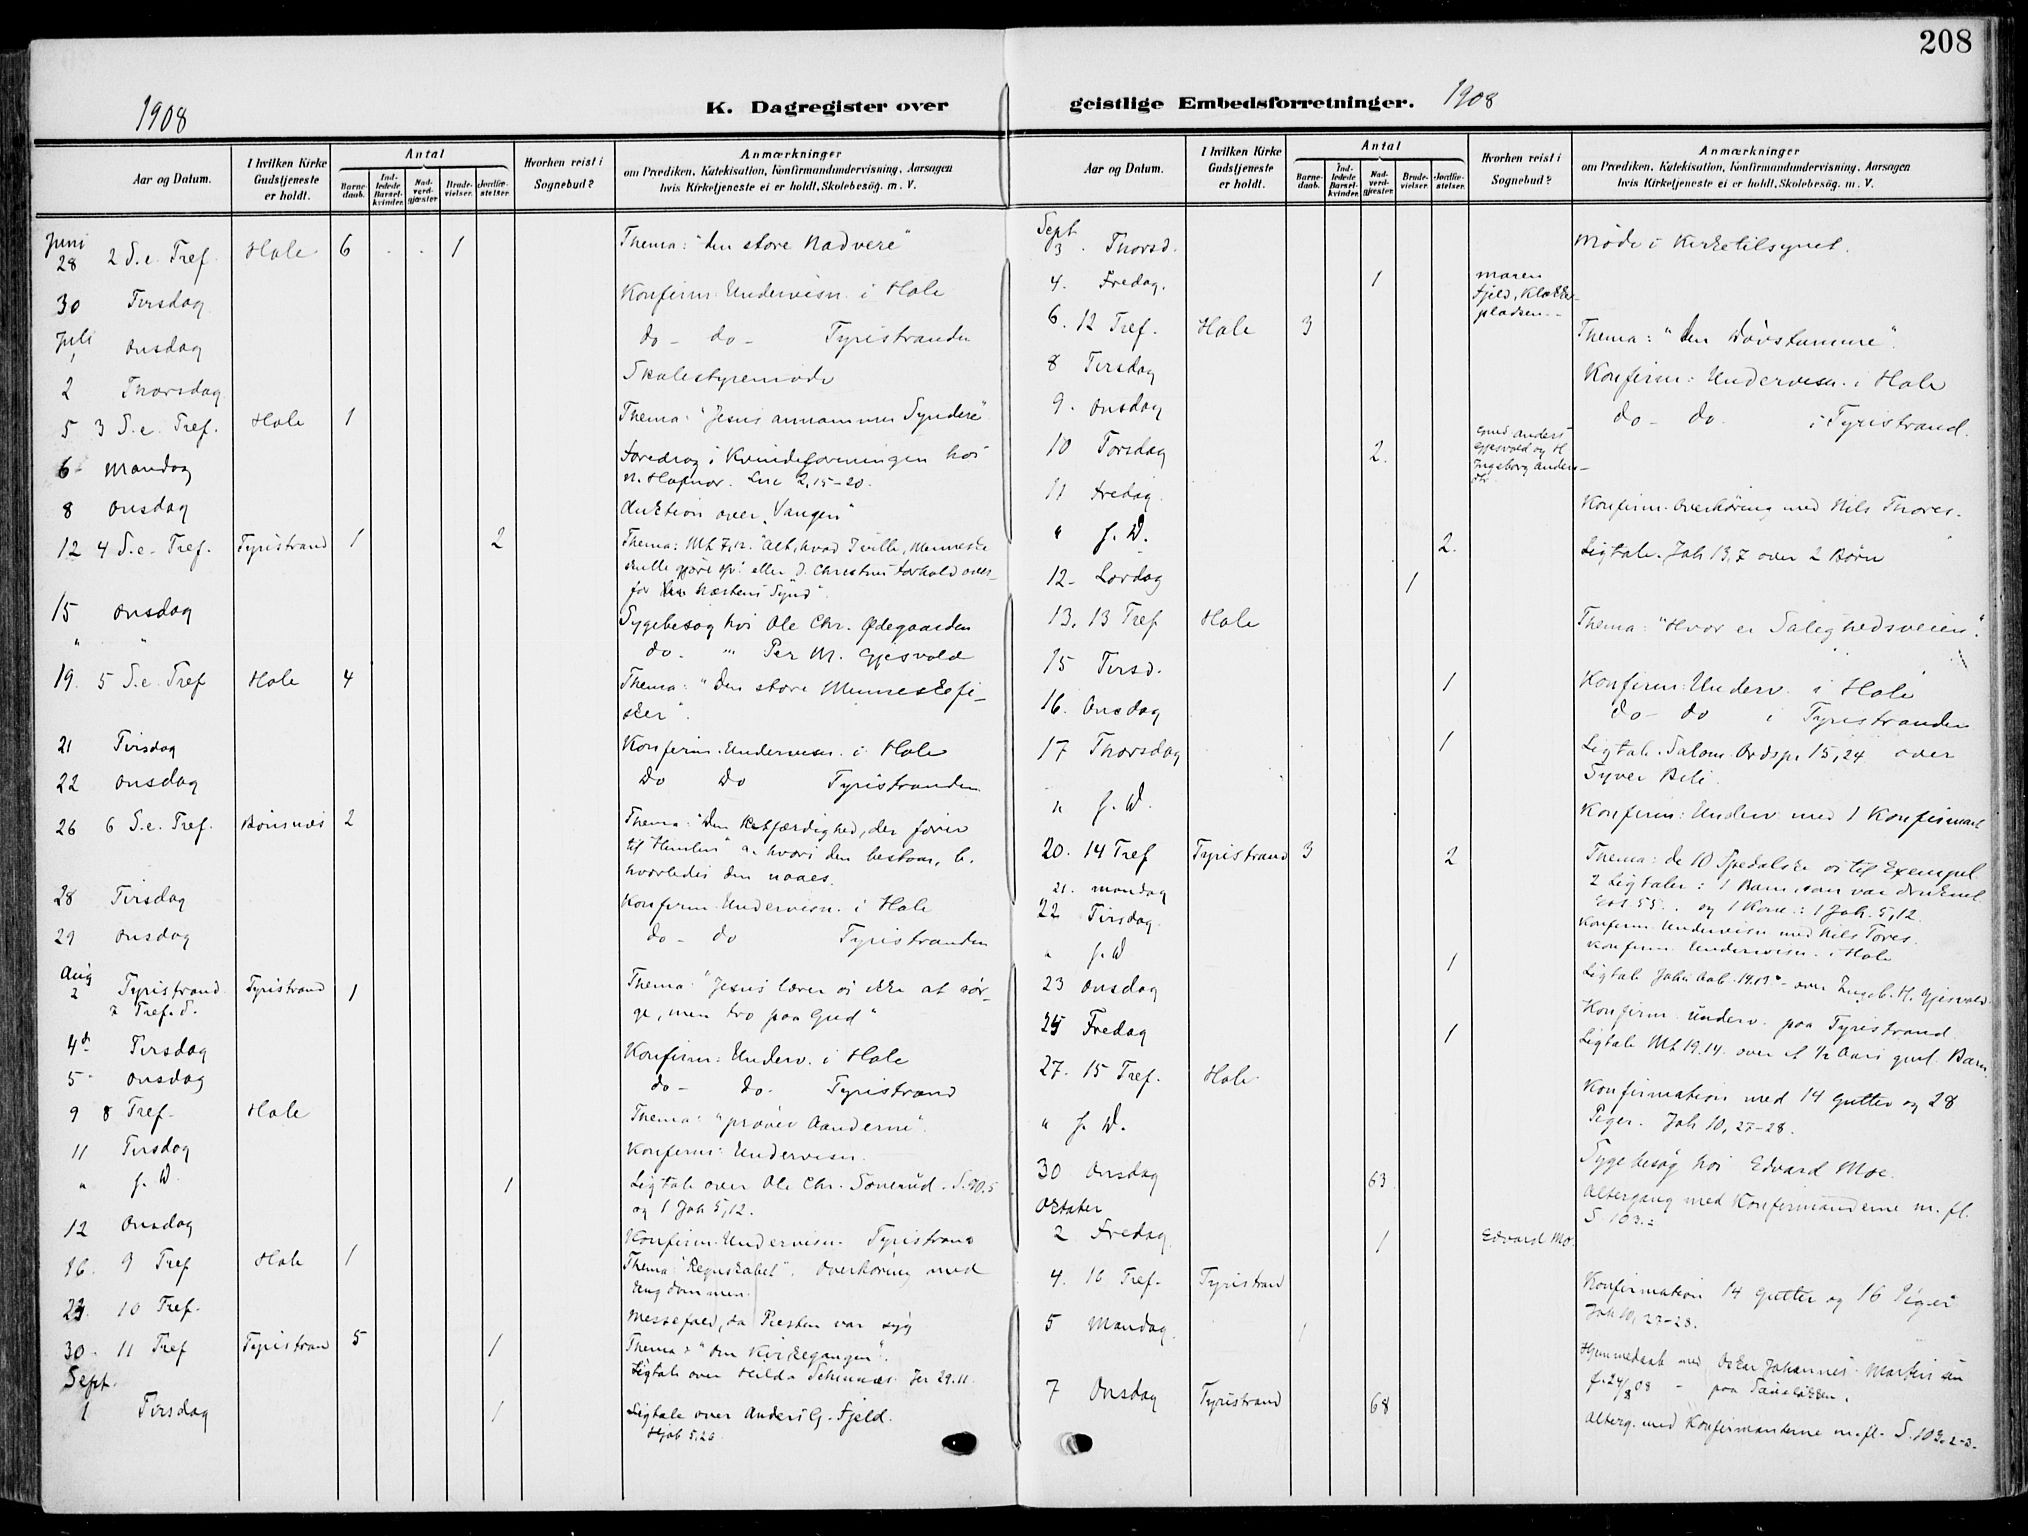 208
1908
K. Dagregister over
geistlige Embedsforretninger.
1908
Aar og Datum.
I hvilken Kirke Gudstjeneste er holdt.
Antal
Barne-daab.
Ind-ledede Barsel-kvinder.
Nad-verd-gjæster.
Brude-vielser.
Jordfæ-stelser.
Hvorhen reist i Sognebud?
Anmærkninger
om Prædiken, Katekisation, Konfirmandundervisning, Aarsagen
hvis Kirketjeneste ei er holdt, Skolebesøg. m. V.
Juni
28 2 S.e. Tref. Hole 6 . . 1 Thema: "den store Nadvere"
30 Tirsdag Konfirm. Undervisn. i Hole
Juli
1 Onsdag do - do - Tyristranden
2 Thorsdag Skolestyremøde
5 3 S.e. Tref. Hole 1 Thema: "Jesus annammer Syndere"
6 Mandag Foredrag i Kvindeforeningen hos
N. Hafnor. Luc 2,15-20.
8 Onsdag Auktion over "Vangen"
12 4 S.e. Tref. Tyristrand 1 2 Thema: Mt 7,12. "Alt, hvad I ville, Menneske
skulle gjøre osv." eller J. Christus forhold over-
for Næstens Synd".
15 Onsdag Sygebesøg hos Ole Chr. Ødegaarden
" " do. " Per M. Gjesvold
19. 5 S.e. Tref Hole 4 Thema: "Den store Menneskefi-
sker".
21 Tirsdag Konfirm. Undervisn. i Hole
22 Onsdag Do Do Tyristranden
26 6 S.e. Tref. Bønsnæs 2 Thema: "Den Retfærdighed, der fører
til Himlen" a. hvori den bestaar, b.
hvorledes den naaes.
28 Tirsdag Konfirm. Undervisn. i Hole
29 Onsdag do - do Tyristranden
Aug
2 Tyristrand Tyristrand 1 Thema: "Jesus lærer os ikke at sør-
7 Tref. S. ge, men tro paa Gud"
4de Tirsdag Konfirm: Underv. i Hole
5 Onsdag do - do. Tyristrand
9 8 Tref. Hole Thema: "prøver Aanderne".
11 Tirsdag Konfirm: Undervisn.
" s. D. 1 Ligtale over Ole Chr. Sønerud. S. 70.5
og 1 Joh 5,12.
12 Onsdag Konfirm. Undervisn. Tyristrand
16. 9 Tref Hole 1 Thema: "Regnskabet". Overhøring med
Ungdommen.
23. 10 Tref. Messefald, da Presten var syg
30. 11 Tref Tyristran 5 1 Thema: "Om Kirkegangen".
Ligtale over Hilda Jer 29.11.
Sept.
1 Tirsdag 1 Ligtale over Anders G. Fjeld.
Hjob 5.26.
Aar og Datum.
I hvilken Kirke Gudstjeneste er holdt.
Antal
Barne-daab.
Ind-ledede Barsel-kvinder.
Nad-verd-gjæster.
Brude-vielser.
Jordfæ-stelser.
Hvorhen reist i Sognebud?
Anmærkninger
om Prædiken, Katekisation, Konfirmandundervisning, Aarsagen
hvis Kirketjeneste ei er holdt, Skolebesøg. m. V.
Sept
3. Thorsd. Møde i Kirketilsynet.
4. Fredag. 1 Maren
Fjeld, Klokker-
pladsen.
6. 12 Tref. Hole 3 Thema: "Den Døvstumme".
8 Tirsdag Konfirm: Undervisn. i Hole
9. Onsdag do - do. i Tyristrand.
10 Torsdag 2. Gmd Anders
Gjesvold og H
Ingeborg Anders-
dtr.
11 Fredag. Konfirm. Overhøring med Nils Thores.
" s. D. 2. Ligtale. Joh 13,7 over 2 Børn
12. Lørdag 1
13. 13 Tref Hole Thema: "Hvor er Salighedsveien".
15 Tirsd. 1 Konfirm: Underv. i Hole
16. Onsdag do - do i Tyristranden
17 Thorsdag 1 Ligtale. Salom. Ordspr. 15,24 over
Syver Bili.
" s. D. Konfirm: Underv. med 1 Konfirmant
20. 14 Tref Tyristrand 3 2 Thema: de 10 Spedalske os til Exempel
2 Ligtaler: 1 Barn, som var druknet
Es. 55. og 1 Kone: 1 Joh. 5,12.
21. Mandag Konfirm. Undervisn med Nils Tores.
22 Tirsdag. Konfirm. Undervisn. i Hole
" s. D 1 Ligtale Johs Aab. 14.13 - over Ingeb. H. Gjesvold.
23 Onsdag Konfirm. Underv. paa Tyristrand.
25 Fredag 1 Ligtale Mt 19.14. over et 1/2 Aars gml. Barn.
27. 15 Tref. Hole Konfirmation med 14 Gutter og 28
Piger. Joh 10, 27-28.
" s. D. Sygebesøg hos Edvard Moe.
30 Onsdag 63 Altergang med Konfirmanderne m. fl.
S. 103.2
Oktober
2 Fredag. 1 Edvard Mo.
4. 16 Tref. Tyristrand Konfirmation 14 Gutter og 16 Piger
Joh 10, 27-28.
5 Mandag. 1 Hjemmedaab med Oskar Johannes Martinsen
f. 24/8 08 - paa
7 Onsdag Tyristrand 68 Alterg. med Konfirmanterne m.fl. S. 103.2-3.